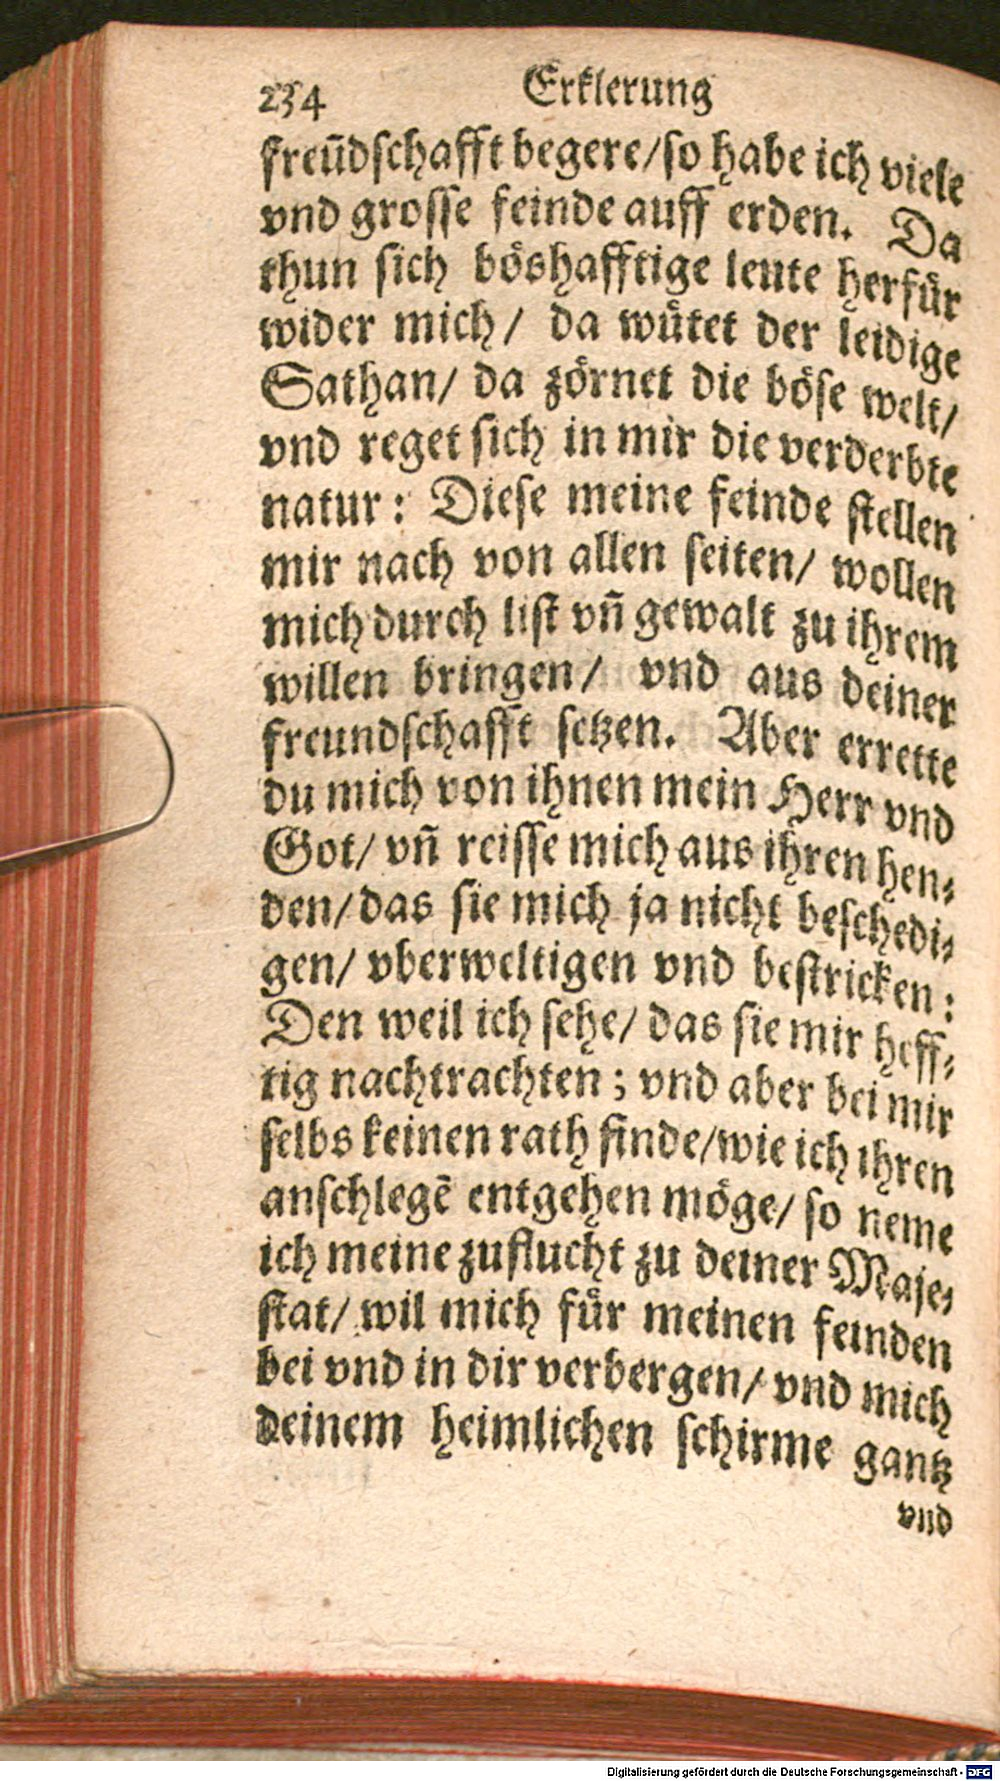 234 Erklerung
freūdschafft begere/so habe ich viele
vnd grosse feinde auff erden. Da
thun sich böshafftige leute herfür
wider mich/ da wütet der leidige
Sathan/ da zörnet die böse welt/
vnd reget sich in mir die verderbte
natur: Diese meine feinde stellen
mir nach von allen seiten/ wollen
mich durch list vñ gewalt zu ihrem
willen bringen/ vnd aus deiner
freundschafft setzen. Aber errette
du mich von ihnen mein Herr vnd
Got/ vñ reisse mich aus ihren hen⸗
den/das sie mich ja nicht beschedi⸗
gen/ vberweltigen vnd bestricken:
Den weil ich sehe/ das sie mir heff⸗
tig nachtrachten; vnd aber bei mir
selbs keinen rath finde/wie ich ihren
anschlegē entgehen möge/ so neme
ich meine zuflucht zu deiner Maje⸗
stat/ wil mich für meinen feinden
bei vnd in dir verbergen/ vnd mich
deinem heimlichen schirme gantz
vnd
Digitalisierung gefördert durch die Deutsche Forschungsgemeinschaft - DFG